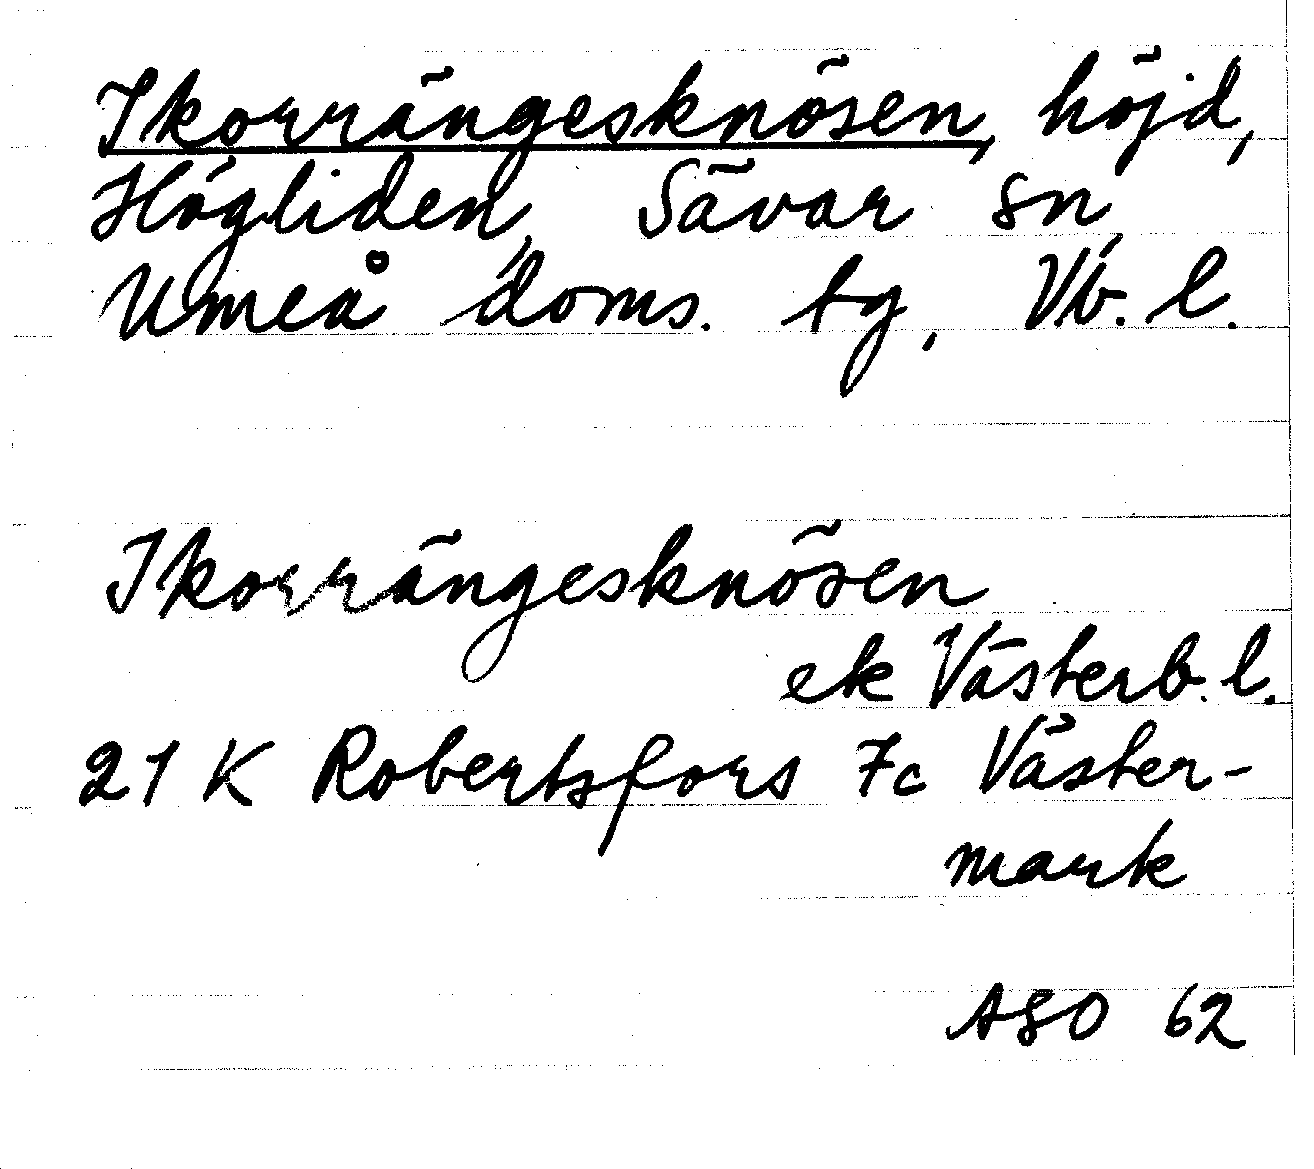 Ikorrängesknösen, höjd,
Högliden, Sävar sn,
Umeå doms. tg, Vb. l.
Ikorrängesknösen
ek Västerb. l.
21 K Robertsfors 7c Väster-
mark
ASO 62